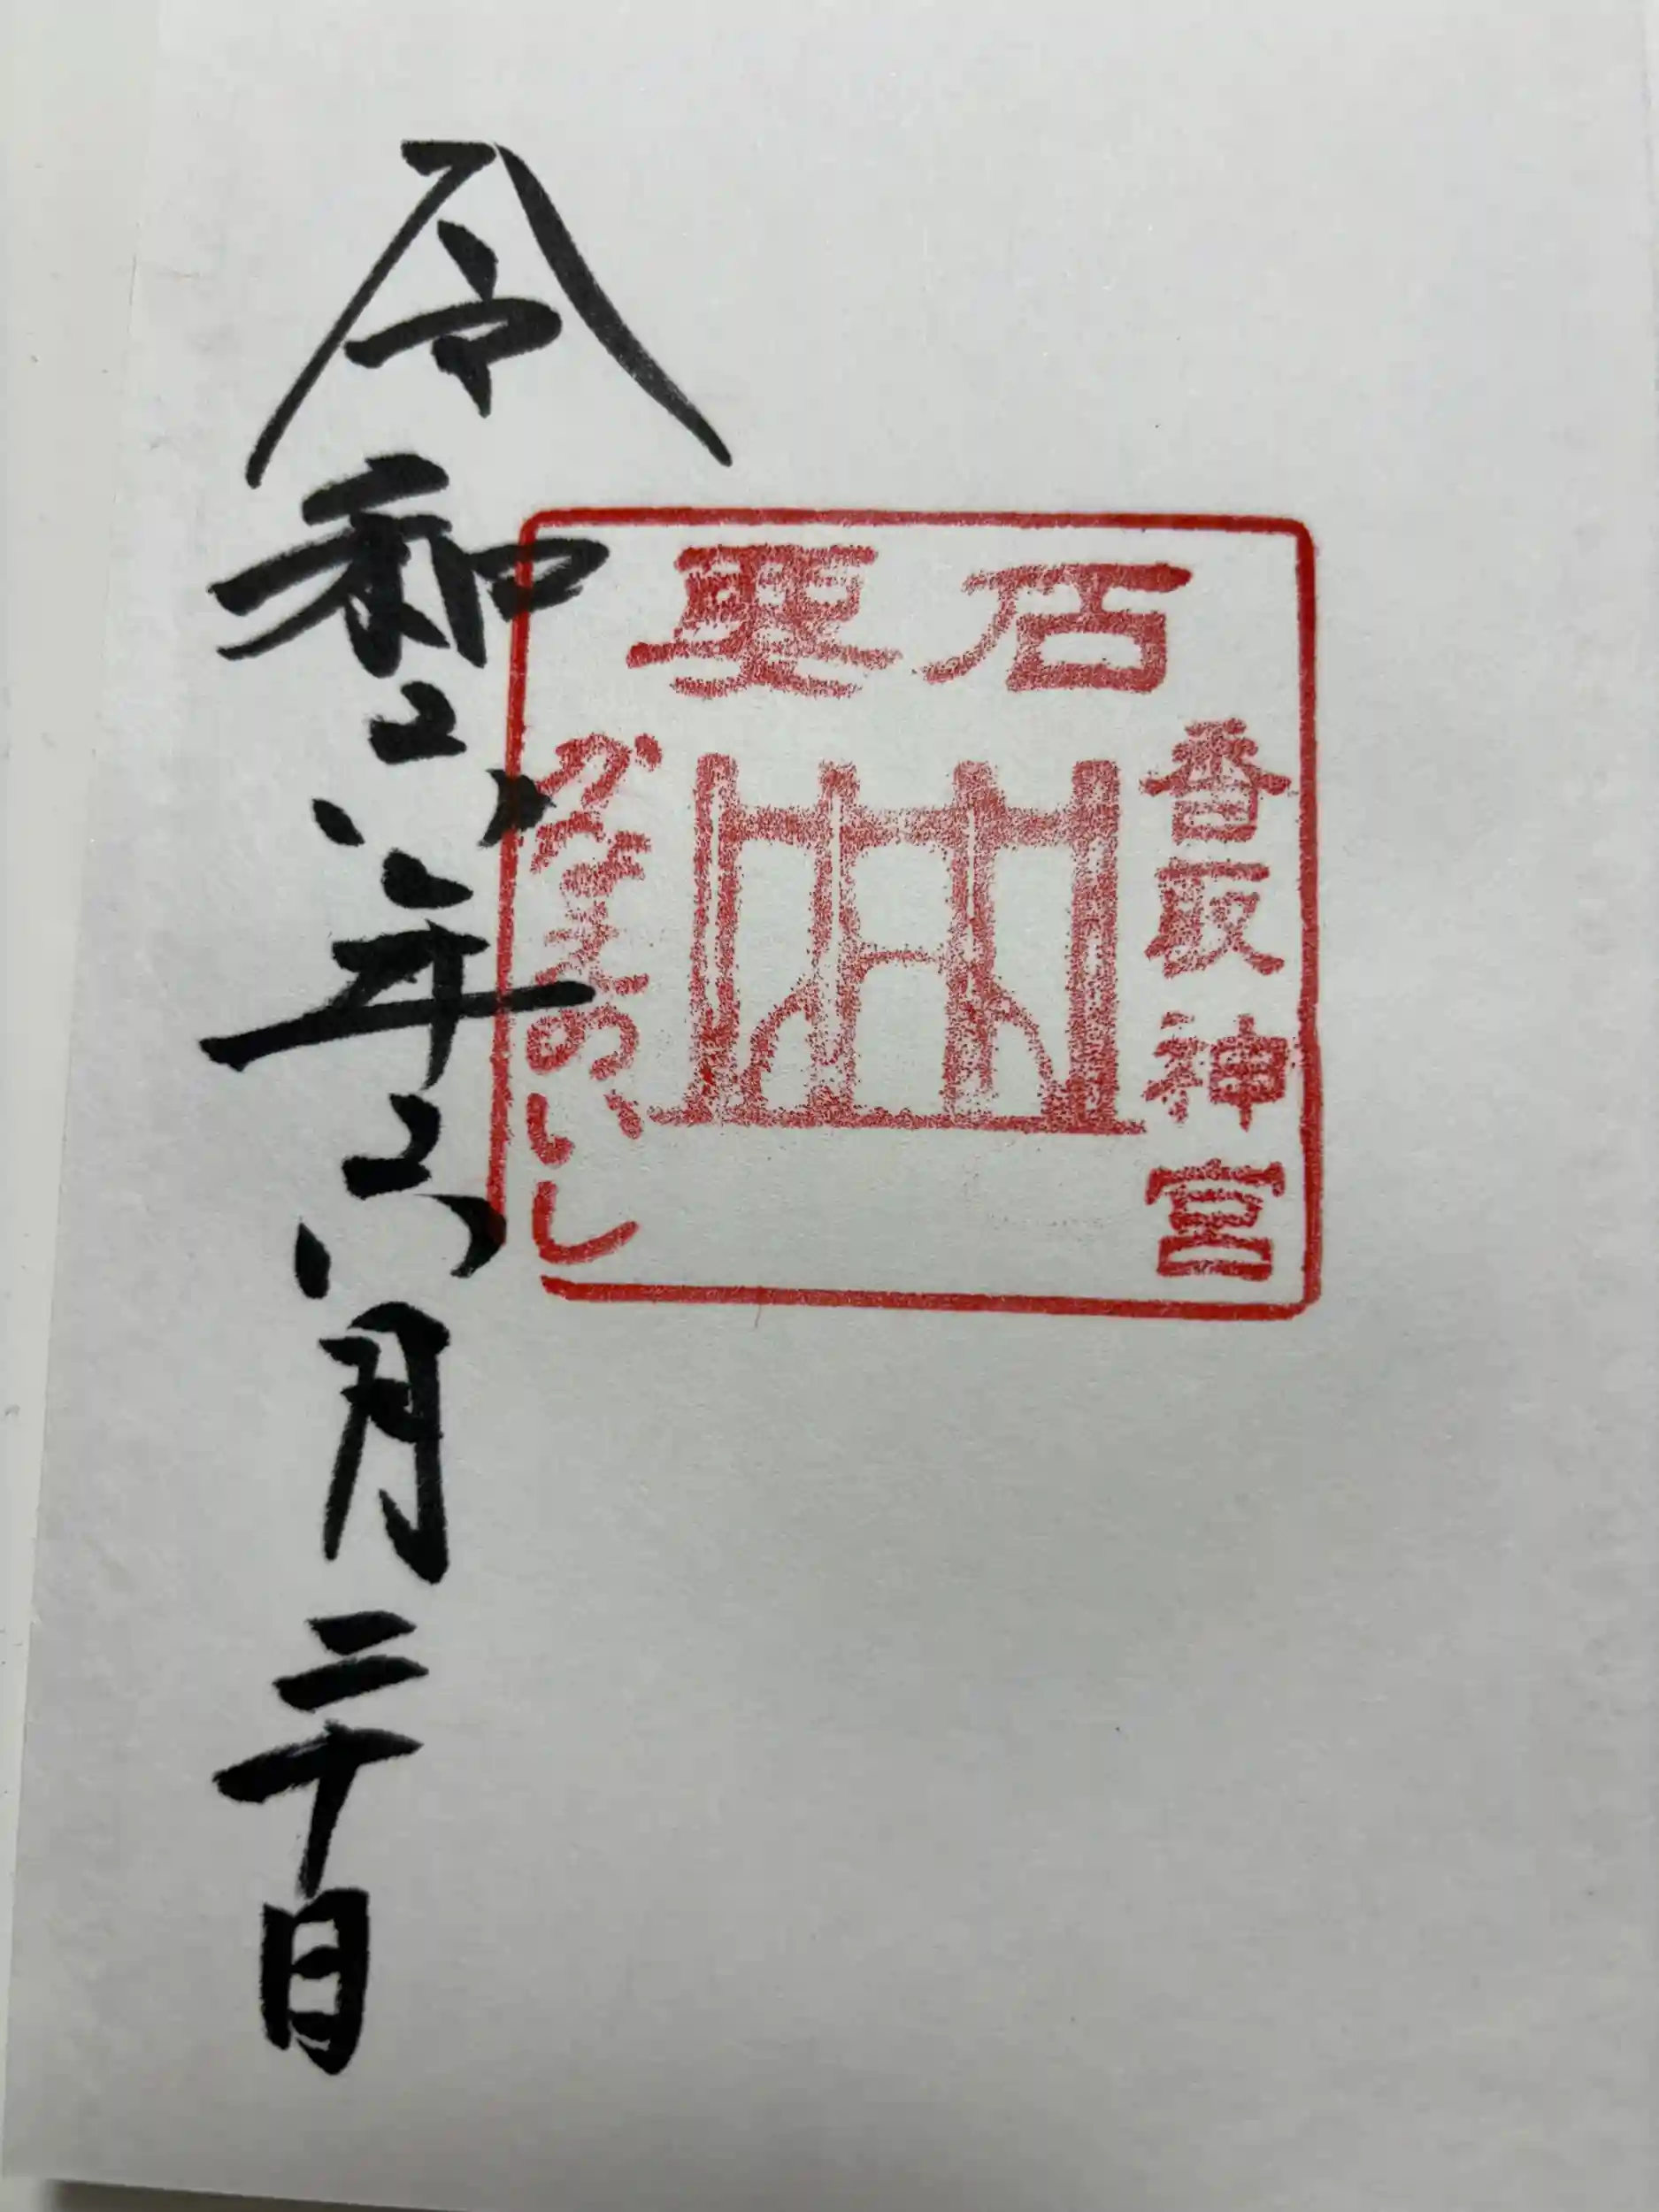 要石
香取神宮
かなめのいし
令和六年六月二十日